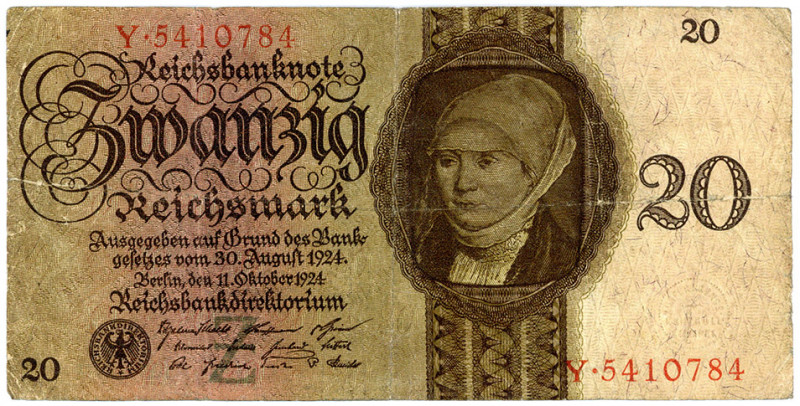 Y·5410784
20
Reichsbanknote
Zwanzig
Reichsmark
20
Ausgegeben auf Grund des Bank-
gesetzes vom 30. August 1924.
Berlin, den 11. Oktober 1924
Reichsbankdirektorium
REICHSBANKDIREKTORIUM
Z
20
Y·5410784